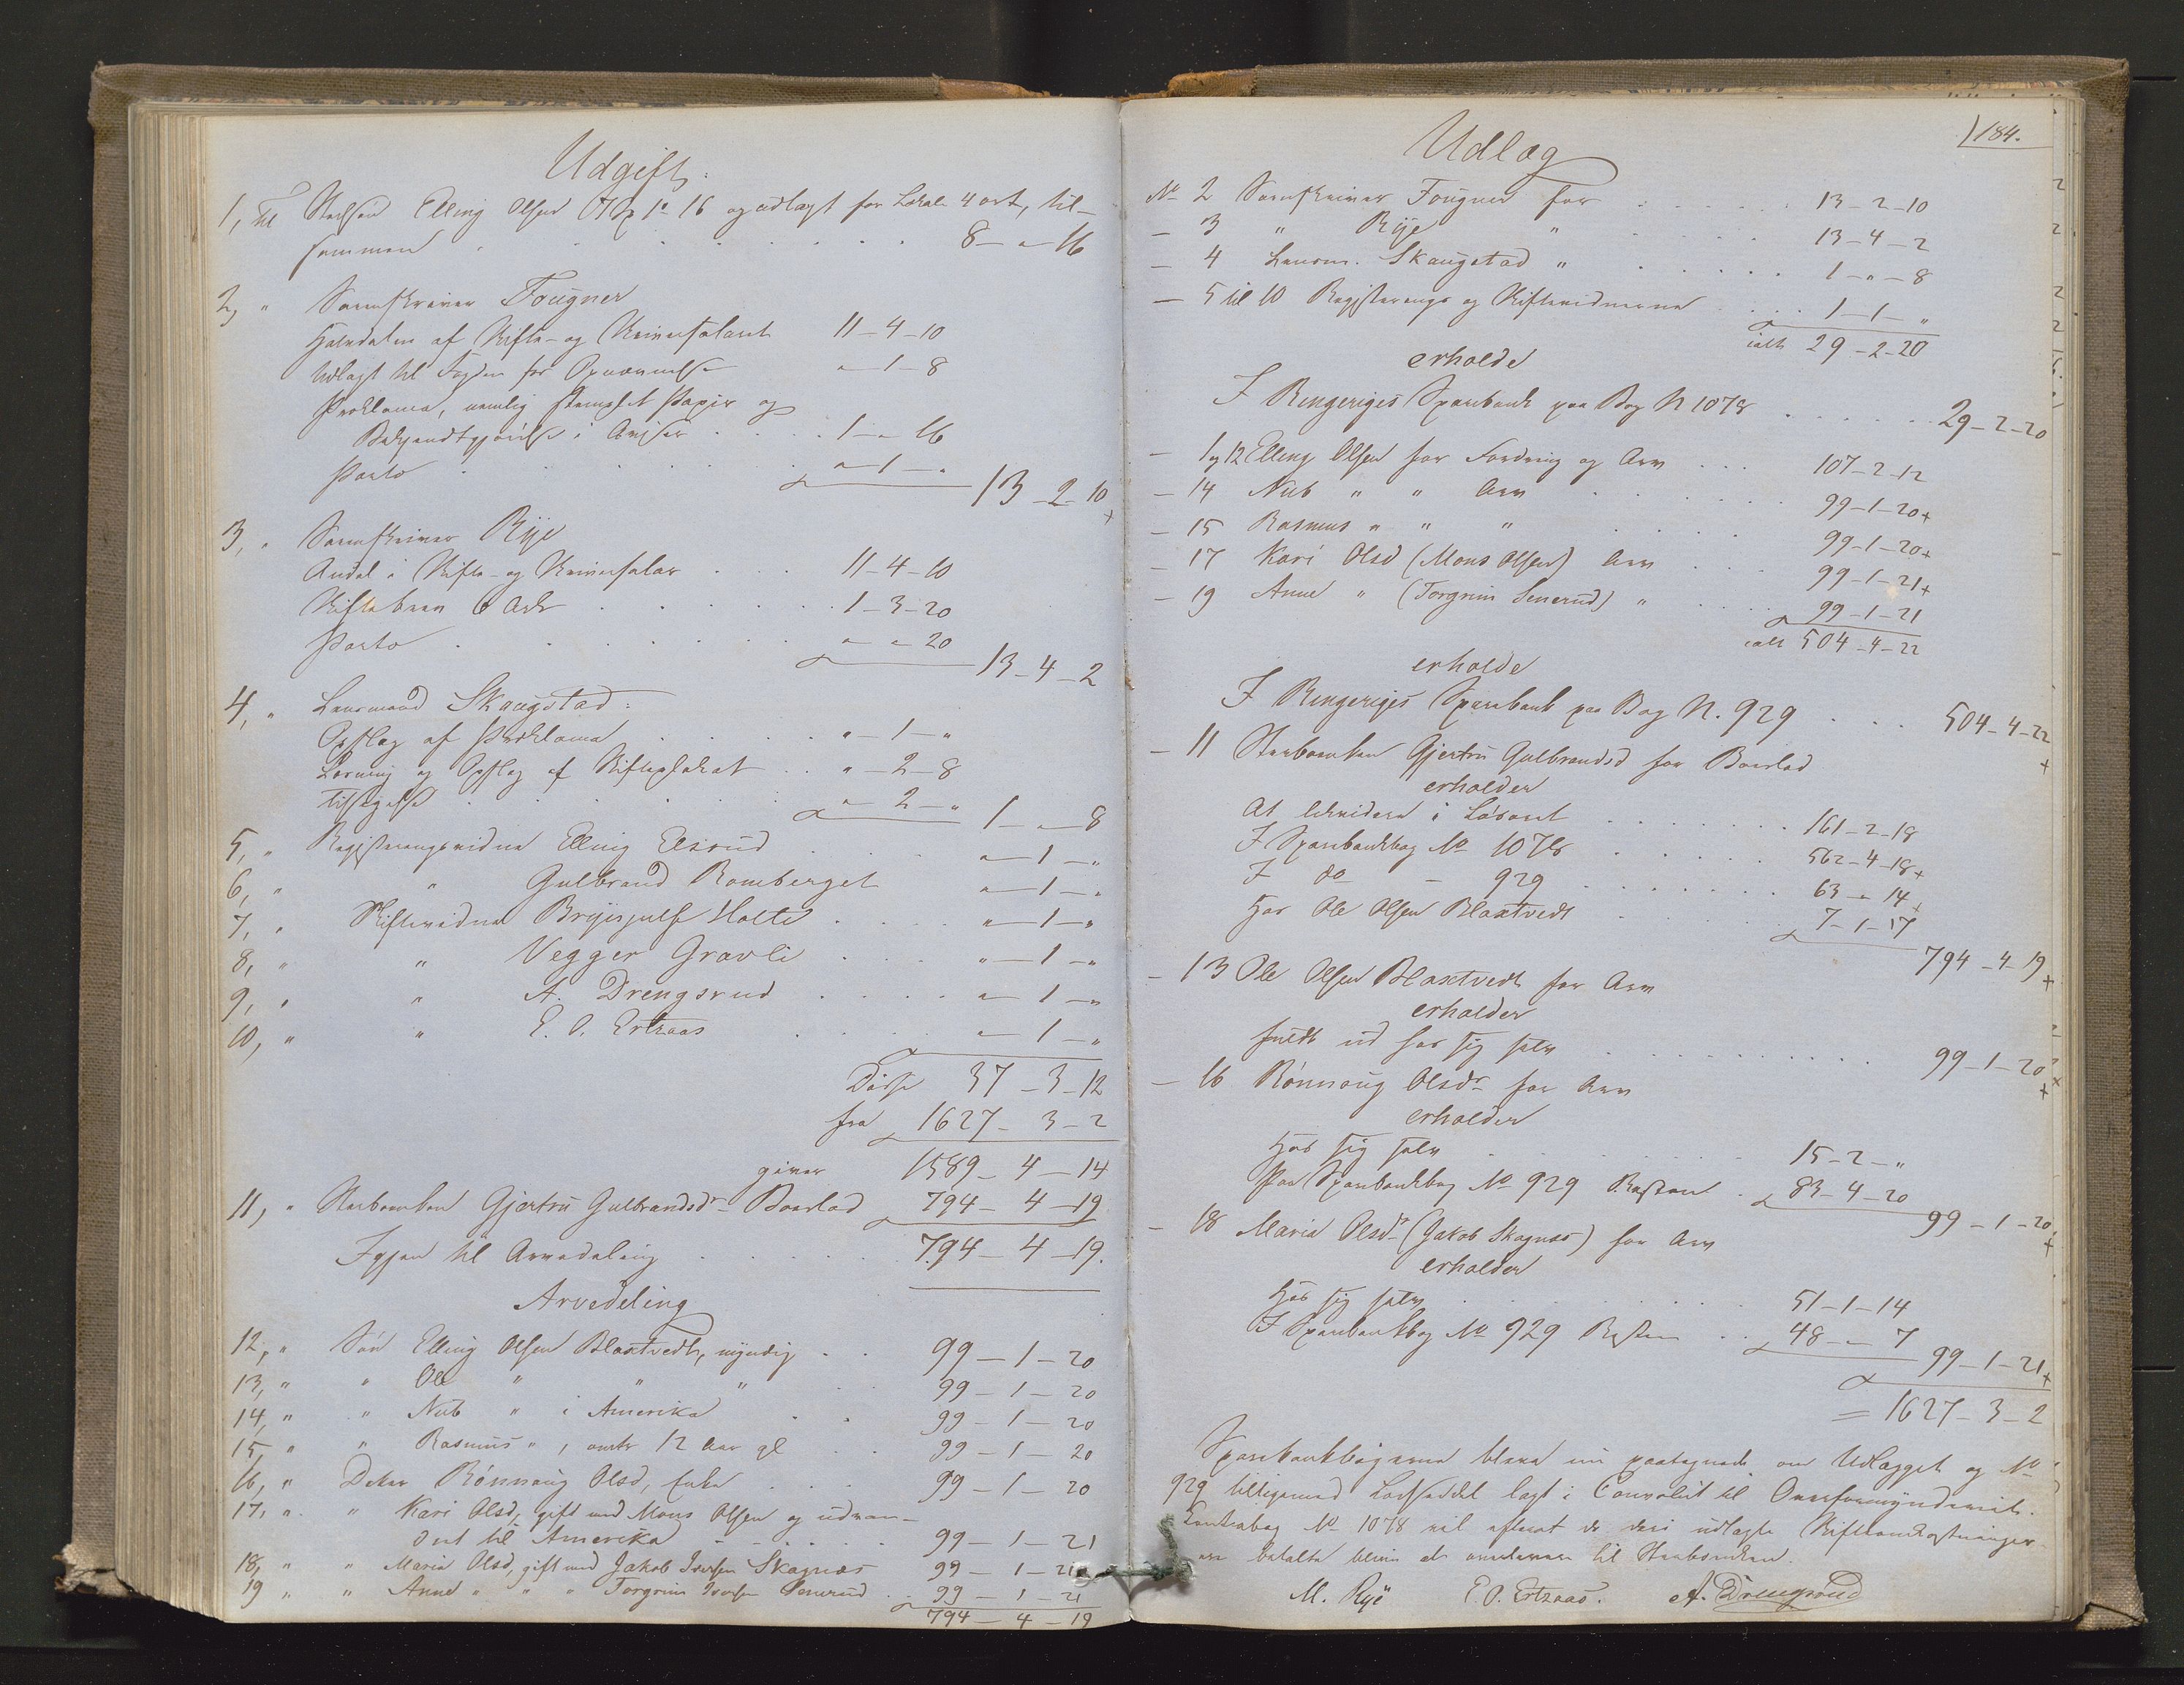 Udgift:
1, Til Stedsøn Elling Olsen og udlagt for Lokale 4 ort, til-
sammen . . . . . 8 - " - 16
2, " Sorenskriver Fougner
Halvdelen af Skifte- og Universalaret 11 - 4 - 10
Udlagt til Fogden for Opnævnelse " - 1 - 8
Proklama, nemlig stemplet Papir og
Bekjendtgjørelse i Aviser . . . 1 - " - 16
Porto . . . . . " - 1 - "
13 - 2 - 10
3, " Sorenskriver Rye
Andel i Skifte- og Universalar . . . 11 - 4 - 10
Skiftebrev 6 Ark . . . . 1 - 3 - 20
Porto . . . . . " - " - 20
13 - 4 - 2
4, " Lensmand Skaugstad:
Opslag af Proklama . . . . " - 1 - "
Læsning og Opslag af Skifteplakat . . " - 2 - 8
Tilsigelse . . . . . " - 2 - "
1 - " - 8
5, " Registeringsvidne Elling Elsrud . . . " - 1 - "
6, " " Gulbrand Romberget " - 1 - "
7, " Skiftevidne Brynjulf Holte . . . " - 1 - "
8, " " Vegger Gravli . . . " - 1 - "
9, " " A. Drengsrud . . . . " - 1 - "
10, " " E. O. Ertzaas . . . . " - 1 - "
Disse 37 - 3 - 12
fra 1627 - 3 - 2
giver 1589 - 4 - 14
11, " Stervboenken Gjertru Gulbrandsdr Boeslod 794 - 4 - 19
Igjen til Arvedeling . . . . 794 - 4 - 19.
Arvedeling
12, " Søn Elling Olsen Blaxtvedt, myndig . . 99 - 1 - 20
13, " " Ole " " " . . 99 - 1 - 20
14, " " Nub " i Amerika . . 99 - 1 - 20
15, " " Rasmus " , omtr 12 Aar gl . . 99 - 1 - 20
16, " Datter Rønnaug Olsd, Enke . . . 99 - 1 - 20
17, " " Kari Olsd, gift med Mons Olsen og udvan-
dret til Amerika . . . . . 99 - 1 - 21
18, " " Maria Olsd, gift med Jakob Iversen Skagnæs 99 - 1 - 21
19 " " Anne " " " Torgrim Iversen Senerud . 99 - 1 - 21
794 - 4 - 19
184.
Udlæg
No 2 Sorenskriver Fougner for . . . . . 13 - 2 - 10
- 3 " Rye " . . . . 13 - 4 - 2
- 4 Lensm. Skaugstad " . . . . . 1 - " - 8
- 5 til 10 Registerings og Skiftevidnerne . . . . 1 - 1 - "
ialt 29 - 2 - 20
erholde
I Ringeriges Sparebank paa Bog N 1078 . . . . . 29 - 2 - 20
- 1 og 12 Elling Olsen for Fordring og Arv . . . 107 - 2 - 12
- 14 Nub " " Arv . . . . . 99 - 1 - 20+
- 15 Rasmus " " " . . . . 99 - 1 - 20+
- 17 Kari Olsd (Mons Olsen) Arv . . . . 99 - 1 - 21+
- 19 Anne " (Torgrim Senerud) " . . . . 99 - 1 - 21
ialt 504 - 4 - 22
erholde
I Ringeriges Sparebank paa Bog N. 929 . . . 504 - 4 - 22
+
- 11 Stervboenken Gjertru Gulbrandsd for Boeslod
erholder
At likvidere i Løsøret . . . . . . 161 - 2 - 18
I Sparebankbog No 1078 . . . . . 562 - 4 - 18+
I do - 929 . . . . . . 63 - " - 14+
Hos Ole Olsen Blaxtvedt . . . . . 7 - 1 - 17
794 - 4 - 19
+
- 13 Ole Olsen Blaxtvedt for Arv
erholder
fuldt ud hos sig selv . . . . . . . . . 99 - 1 - 20
+
- 16 Rønnaug Olsdr for Arv
erholder
Hos sig selv . . . . . . . 15 - 2 - "
Paa Sparebankbog No 929 Resten . 83 - 4 - 20
99 - 1 - 20
+
- 18 Maria Olsdr (Jakob Skagnæs) for Arv
erholder
Hos sig selv . . . . . . . 51 - 1 - 14
I Sparebankbog No 929 Resten . . 48 - " - 7
99 - 1 - 21+
= 1627 - 3 - 2
Sparebankbøgerne bleve nu paategnede om Udlægget og No
929 tilligemed Lodseddel lagt i Convolut til Overformynderiet.
Contrabog No 1078 vil efterat de deri udlagte Skifteomkostninger
ere betalte blive at overlevere til Stervboenken.
M. Rye E. O. Ertzaas. A. Drengsrud